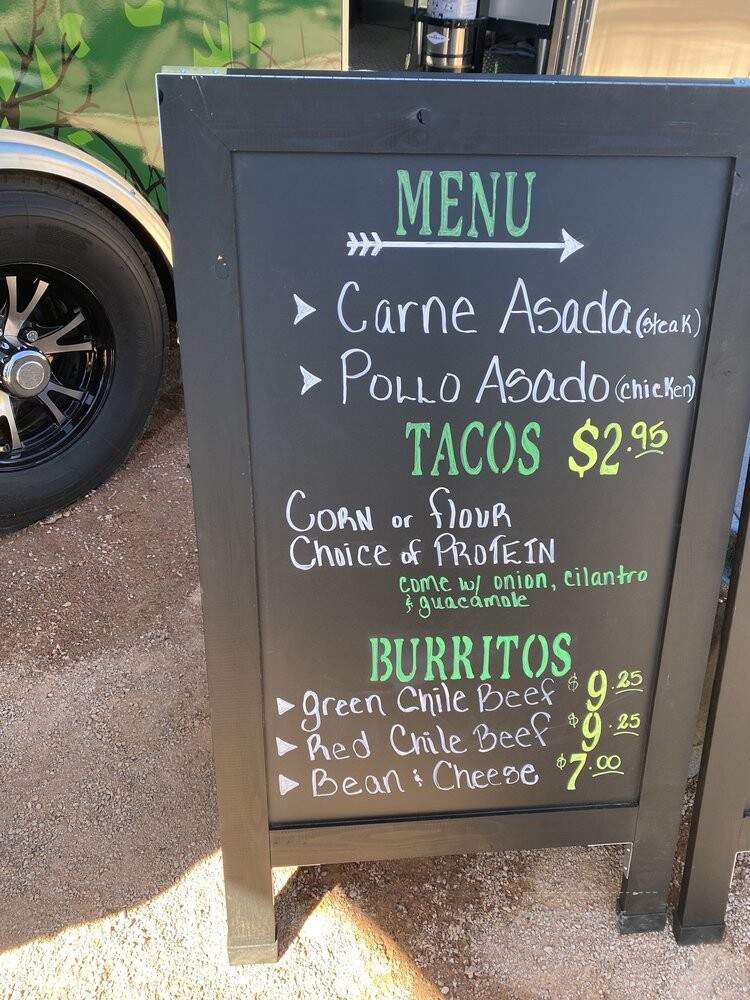 MENU
Carne Asada (steak)
Pollo Asado (chicken)
TACOS $2.95
Corn or flour
Choice of PROTEIN
come w/ onion, cilantro
& guacamole
BURRITOS
green Chile Beef $9.25
Red Chile Beef $9.25
Bean & Cheese $7.00